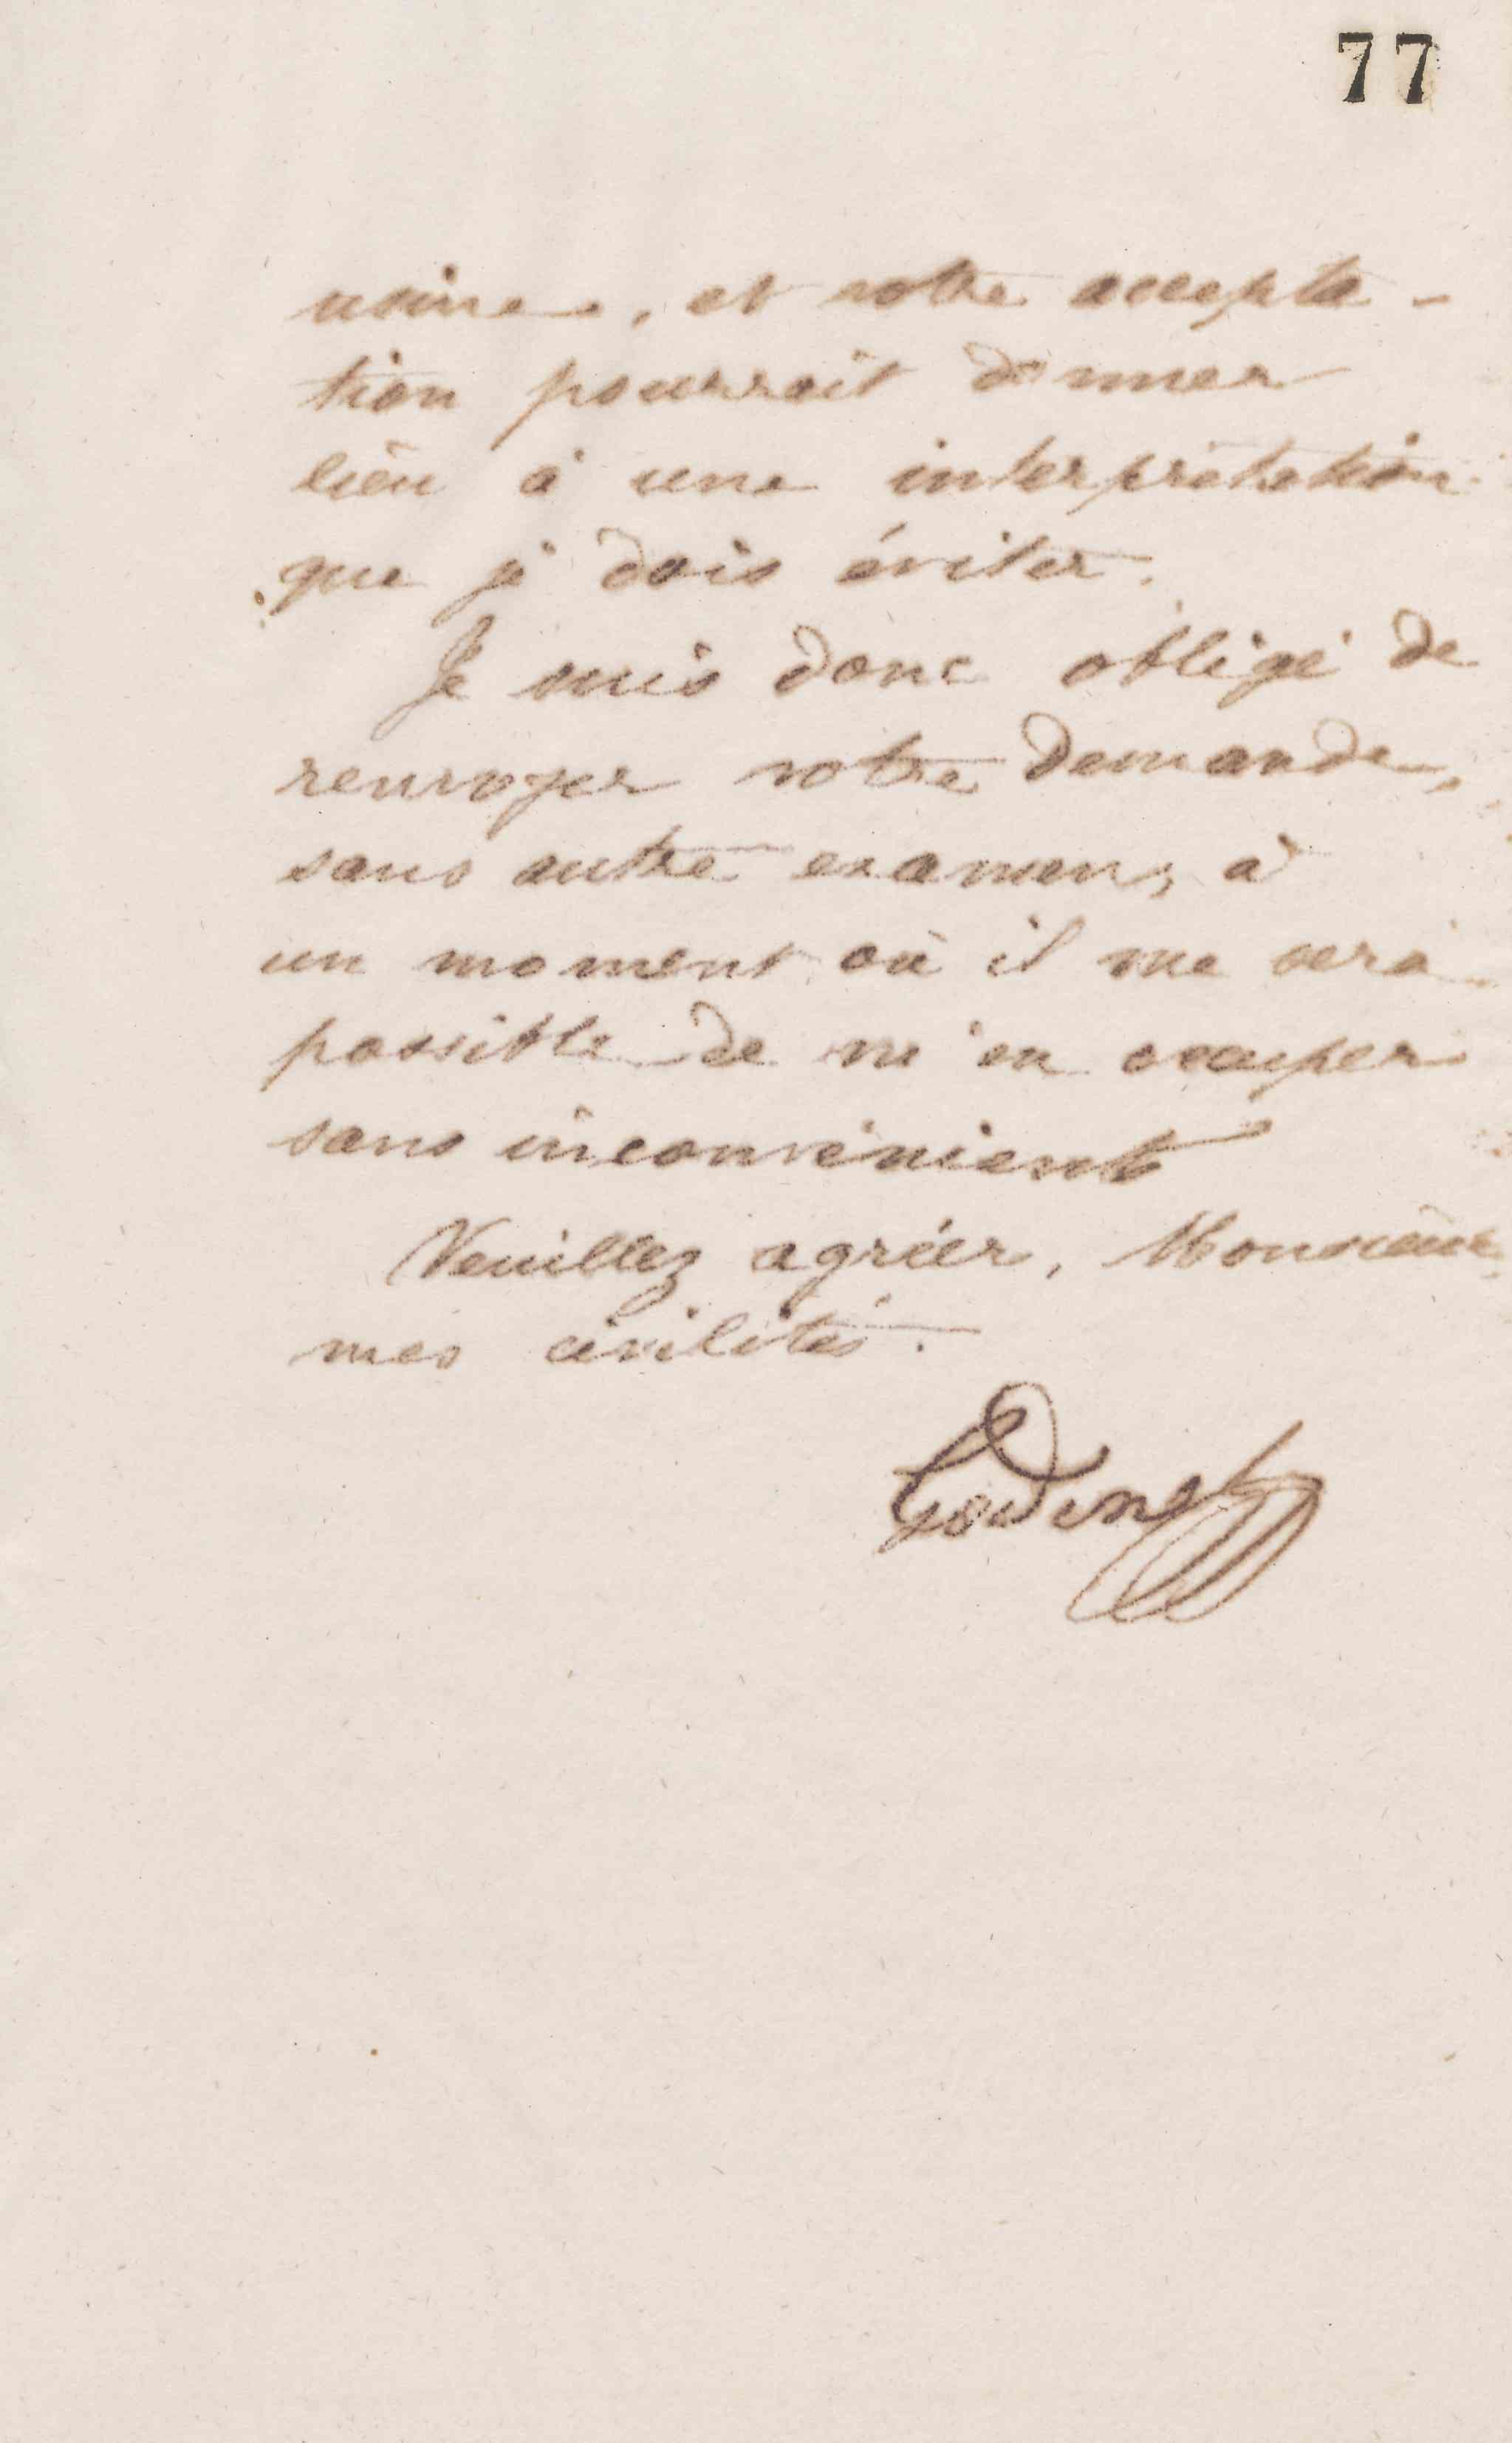 77
usine, et votre accepta-
tion pourrait donner
lieu à une interprétation
que je dois éviter.
Je suis donc obligé de
renvoyer votre demande,
sans autre examen, à
un moment où il me sera
possible de m'en occuper
sans inconvénient
Veuillez agréer, Monsieur
mes civilités.
Godin